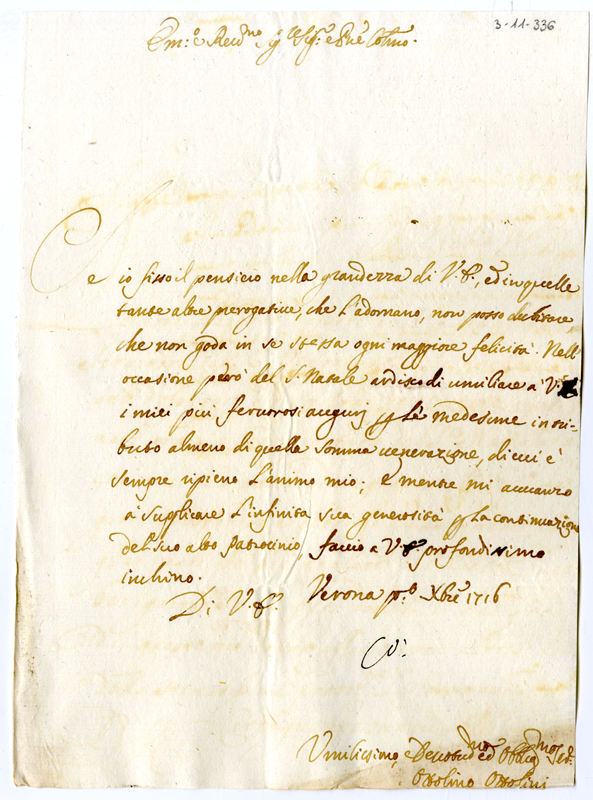 3-11-336
Em:o e Reud.mo Sig.re e P̃ne Col.mo
Se io fisso il pensiero nella grandezza di V. E., ed in quelle
tante altre prerogative, che L'adornano, non posso dubitare,
che non goda in se stessa ogni maggiore felicità. Nell'
occasione però del S. Natale ardisco di umiliare à V. E.
i miei più feruorosi augurj per Lè medesime in tri-
buto almeno di quella somma uenerazione, di cui è
sempre ripieno L'animo mio; e mentre mi auuanzo
à supplicare L'infinita sua generosità per La continuazione
del suo alto Patrocinio, faccio a V. E. profondissimo
inchino.
Di V. E. Verona p.o Xbre 1716
Umilissimo Deuot.mo ed Obblig.mo Ser.
Ottolino Ottolini